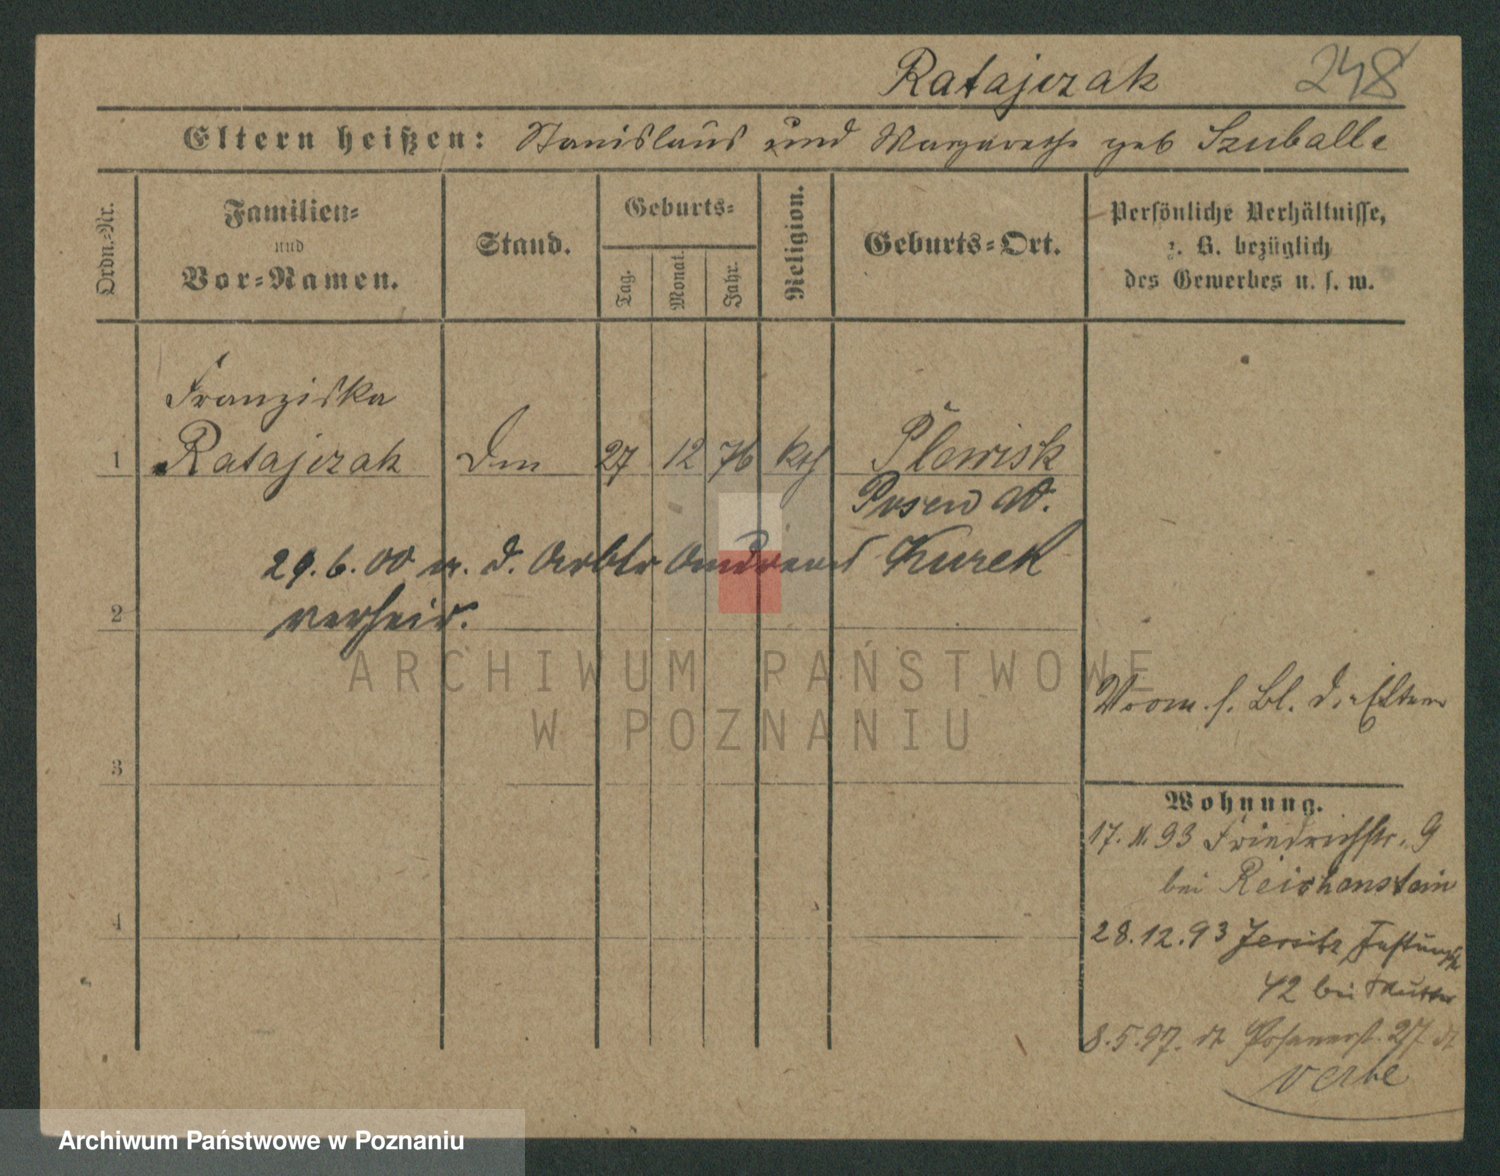 Ratajczak 248
Eltern heißen: Stanislaus und Margarethe geb Szuballe
Ordn.-Nr.
Familien-
und
Vor-Namen.
Stand.
Geburts-
Tag.
Monat.
Jahr.
Religion.
Geburts-Ort.
Persönliche Verhältnisse,
z. B. bezüglich
des Gewerbes u. s. w.
Franziska
1 Ratajczak 27 12 76 kth Plewisk
Posen W.
29.6.00 m. d. Arbtr Andreas Kurek
2 verheir.
ARCHIWUM PAŃSTWOWE
W POZNANIU
s. Bl. d. Eltern
3
Wohnung.
17.11.93 Friedrichstr. 9
bei Reichenstein
4
28.12.93 Jersitz
42 bei Mutter
8.5.97. dt Posenerst. 27 dt
Archiwum Państwowe w Poznaniu